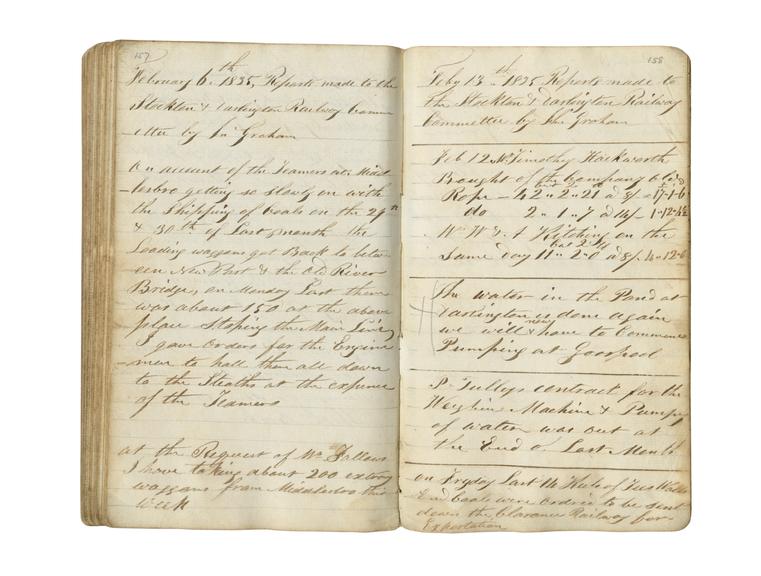 157
February 6th 1835, Reports made to the
Stockton & Darlington Railway Comm
-ittee by Jno Graham
On account of the Teamers at Midd
-lesbro getting so slowly on with
the Shipping of Coals on the 29th
& 30th of Last month the
Loading waggons got Back to betw-
een New Port & the Old River
Bridge, on Monday Last there
was about 150 at the above
place Stoping the Main Line,
I gave orders for the Engine
-men to hall them all down
to the Steaths at the expence
of the Teamers
at the Request of Wm Fallows
I have taking about 200 extrey
waggons from Middlesbro this
Week
158
Feby 13th 1835 Reports made to
the Stockton & Darlington Railway
Committee by Jno Graham
Feb 12 Mr Timothy Hackworth
Bought of the Company Old
Rope
do 2 - 1 - 7 a
Mr W & A Kitching on the
Same day 11 - 2 - 0 a
The water in the Pond at
Darlington is done again
we will now have to Commence
Pumping at Goospool
P Tullys contract for the
Weighin Machine & Pumps
of water was out at
the End of Last Month
on Fryday Last 14
Coals were ordred to be sent
down the Clarance Railway for
Expertation